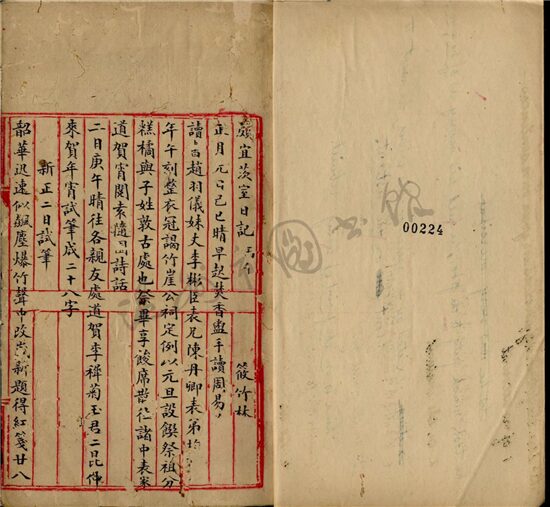 宜茨室日記
筱竹林
正月元旦己巳晴早起焚香盥手讀周易
讀 百趙羽儀妹丈李彬臣表兄陳丹卿表弟
年午刻整衣冠謁竹崖公祠定例以元旦設饌祭祖分
糕橘與子姓敦古處也祭畢享餕席散 諸中表家
道賀宵閱袁隨園詩話
二日庚午晴往各親友處道賀李稺菊玉君二昆仲
來賀年宵試筆成二十八字
新正二日試筆
韶華迅速似 塵爆竹聲中改歲新題得紅箋廿八
00224